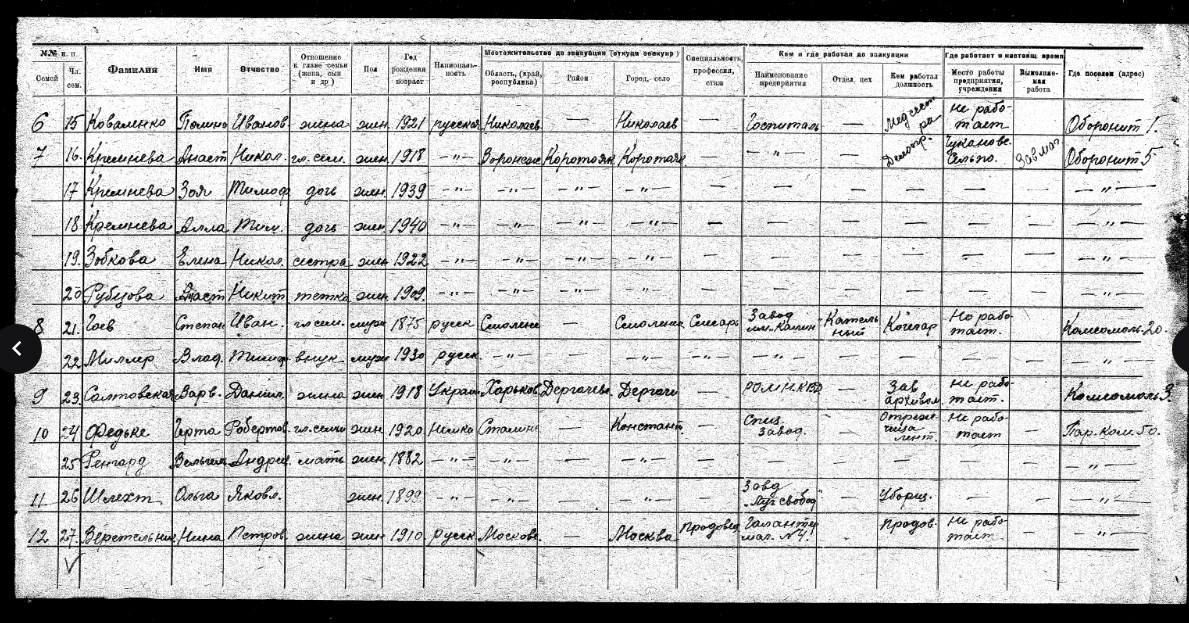 №№ п. п. Местожительство до эвакуации (откуда эвакуир.) Кем и где работал до эвакуации Где работает в настоящ. время
Семей Чл. сем. Фамилия Имя Отчество Отношение к главе семьи (жена, сын и др.) Пол Год рождения Националь-ность Область, (край, республика) Район Город, село Специальность, профессия, стаж Наименование предприятия Отдел, цех Кем работал должность Место работы предприятия, учреждения Выполняе-мая работа Где поселен (адрес)
6 15 Коваленко Иванов. жена жен. 1921 русская Николаев — Николаев — Госпиталь — Медсестра не работает — Оборонит 1.
7 16. Кремнева Анаст Никол. гл. сем. жен. 1918 —"— Воронеж Коротояк Коротояк — — "— — Завмаг Оборонит 5
17 Кремнева Зоя Тимоф дочь жен. 1939 —"— —"— —"— —"— — — — — — — —"—
18 Кремнева Алла Тим. дочь жен. 1940 —"— —"— —"— —"— — — — — — — —"—
19. Зобкова Елена Никол. сестра жен. 1922 —"— —"— —"— —"— — — — — — — —"—
20 Рубцова Анаст Никит тетка жен. 1909. —"— —"— —"— —"— — — — — — — —"—
8 21. Гоев Степан Иван. гл. сем. муж 1875 русск Смоленс — Смоленс Слесарь Завод им. Калин Котель ный Кочегар Не рабо-тает. — Комсомоль. 20.
22 Миллер Влад. Тимоф внук муж 1930 русск. —"— — —"— — —"— — — — — —"—
9 23. Салтовская Варв. Данил. жена жен 1918 Украин Харьков Дергачевс Дергачи — — Зав архивом не рабо-тает. — Комсомоль 3.
10 24 Федьке Герта Робертов. гл. семьи жен 1920 Немка Сталинс — Констант. — Спец. завод. — не рабо-тает — Пар. Ком. 50.
25 Ренгард Андре мать жен. 1882 —"— —"— — —"— — — — — — — —"—
11 26 Шлехт Ольга Яковл. жен. 1899 —"— —"— — —"— — Завод — Уборщ. — — —"—
12 27. Нина Петров. жена жен 1910 русск Москове — Москва продавец Галантер маг. №4. . продав. не рабо-тает. — —"—